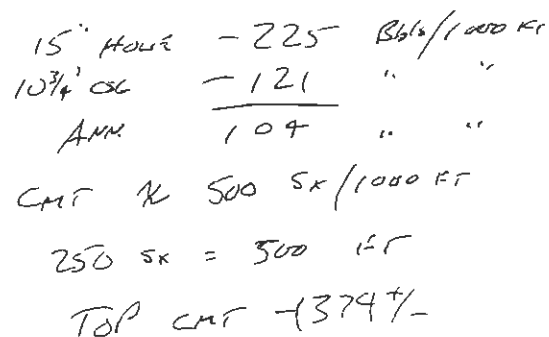 15" HOLE - 225 Bbls/1000 FT
10 3/4" CSG - 121 " "
ANN. 104 " "
CMT 500 SX/1000 FT
250 SX = 500 FT
TOP CMT -1374 +/-